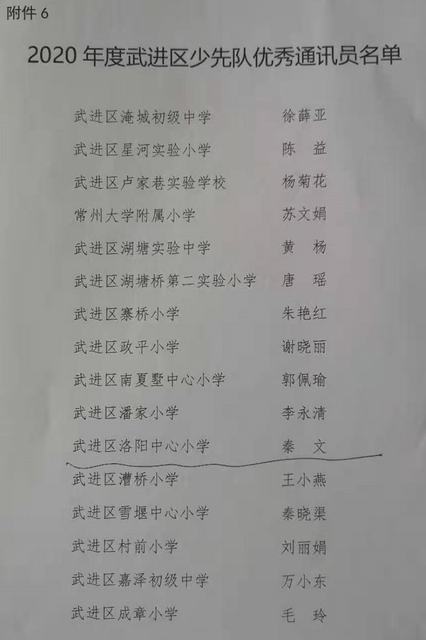 附件6
2020年度武进区少先队优秀通讯员名单
武进区淹城初级中学 徐薛亚
武进区星河实验小学 陈 益
武进区卢家巷实验学校 杨菊花
常州大学附属小学 苏文娟
武进区湖塘实验中学 黄 杨
武进区湖塘桥第二实验小学 唐 瑶
武进区寨桥小学 朱艳红
武进区政平小学 谢晓丽
武进区南夏墅中心小学 郭佩瑜
武进区潘家小学 李永清
武进区洛阳中心小学 秦 文
武进区漕桥小学 王小燕
武进区雪堰中心小学 秦晓渠
武进区村前小学 刘丽娟
武进区嘉泽初级中学 万小东
武进区成章小学 毛 玲